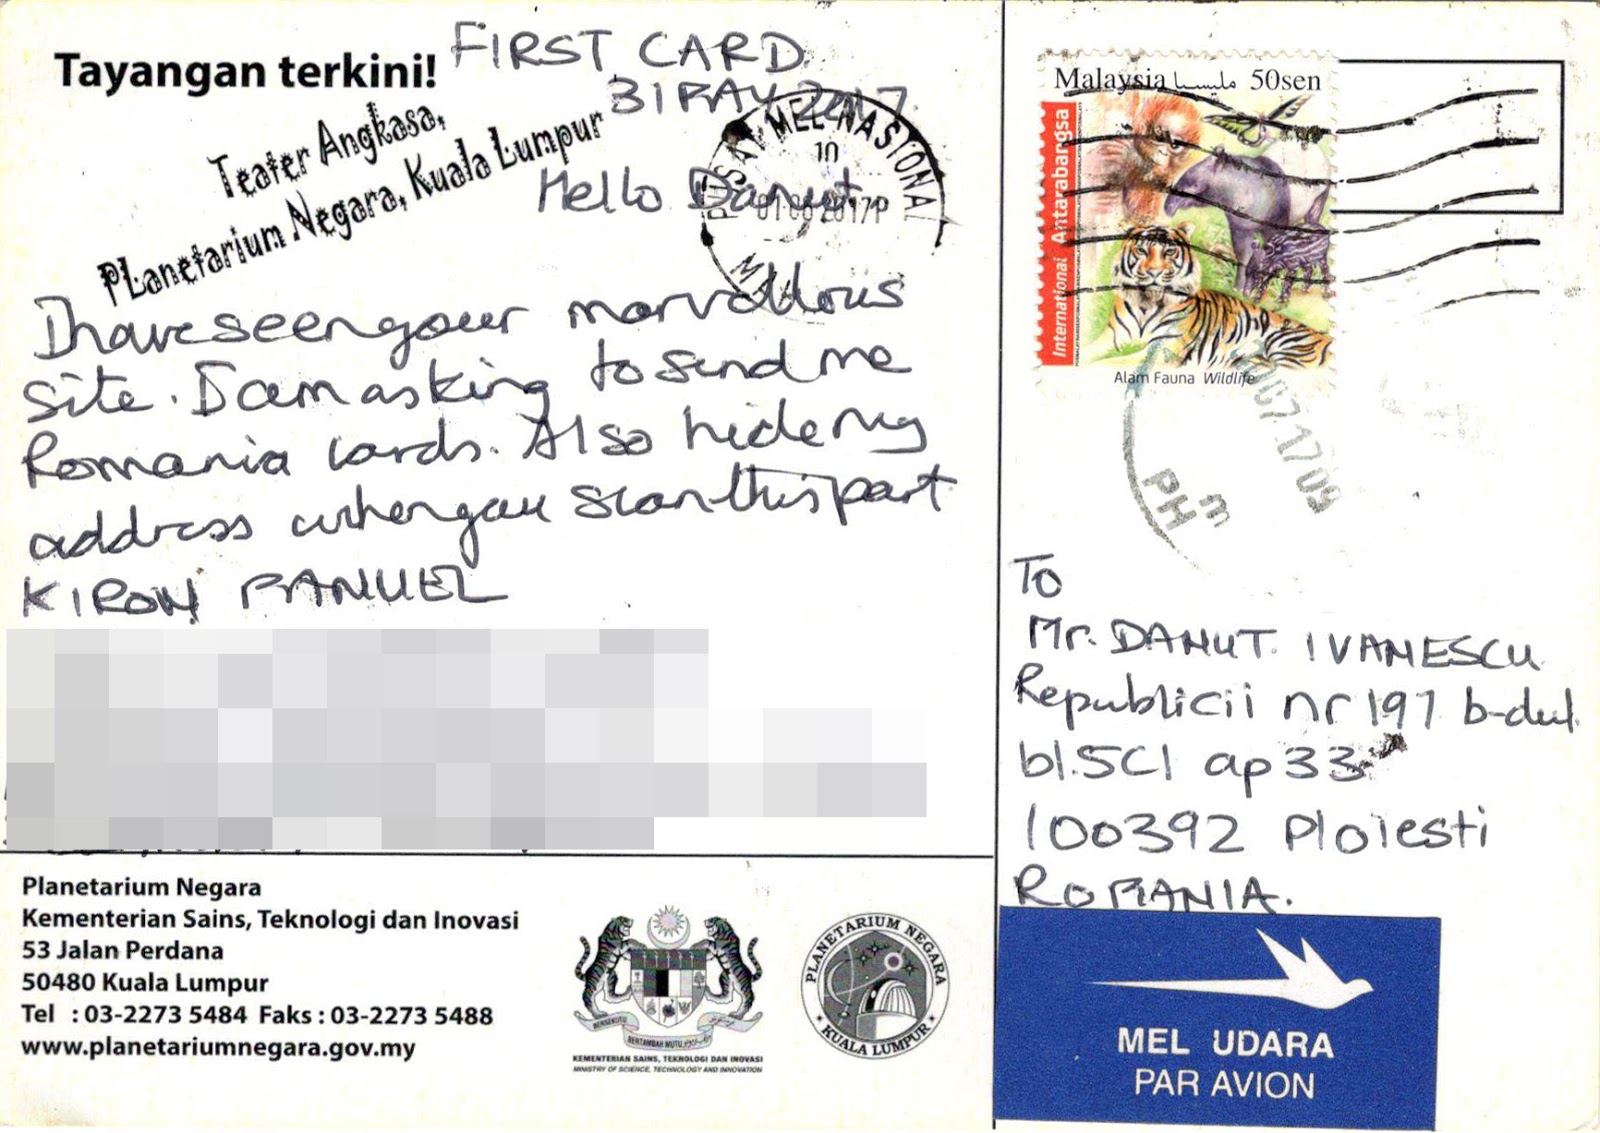 Tayangan terkini!
Teater Angkasa,
PLanetarium Negara, Kuala Lumpur
FIRST CARD
31 MAY 2017.
Hello Danut,
I have seen your marvellous
site. I am asking to send me
Romania cards. Also hide my
address when you scan this part
KIRON MANUEL
Planetarium Negara
Kementerian Sains, Teknologi dan Inovasi
53 Jalan Perdana
50480 Kuala Lumpur
Tel : 03-2273 5484 Faks : 03-2273 5488
www.planetariumnegara.gov.my
BERSEKUTU BERTAMBAH MUTU
KEMENTERIAN SAINS, TEKNOLOGI DAN INOVASI
MINISTRY OF SCIENCE, TECHNOLOGY AND INNOVATION
PLANETARIUM NEGARA
KUALA LUMPUR
PUSAT MEL NASIONAL
10
2017P
Malaysia مليسيا 50sen
International Antarabangsa
Alam Fauna Wildlife
07.17 09
PH
m
To
Mr. DANUT. IVANESCU
Republicii nr 197 b-dul
bl.5C1 ap 33
100392 Ploiesti
ROMANIA.
MEL UDARA
PAR AVION